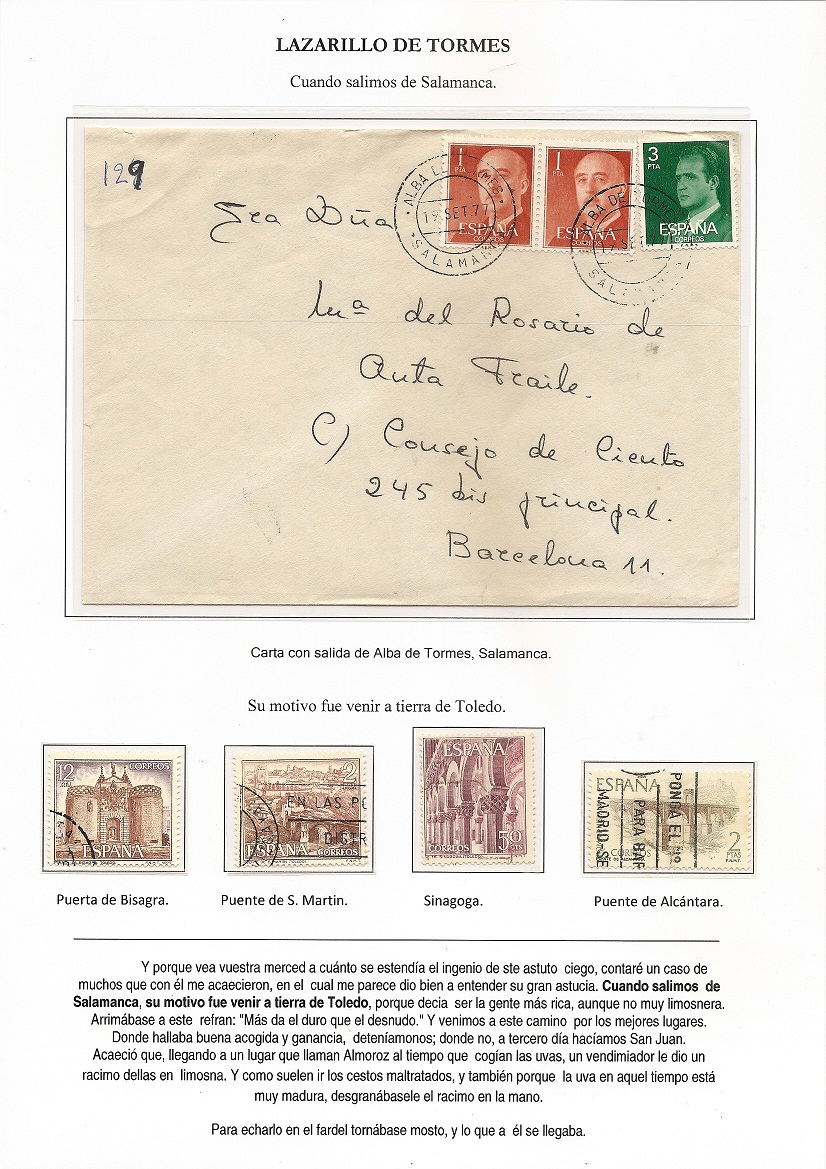 LAZARILLO DE TORMES
Cuando salimos de Salamanca.
129
1 PTA
ESPAÑA
CORREOS
1 PTA
ESPAÑA
CORREOS
3 PTA
ESPAÑA
CORREOS
ALBA DE TORMES
SET.77
SALAMANCA
ALBA DE TORMES
SET
Sra Dña
Mª del Rosario de
Anta Fraile.
C) Consejo de Ciento
245 bis principal.
Barcelona 11.
Carta con salida de Alba de Tormes, Salamanca.
Su motivo fue venir a tierra de Toledo.
12 PTAS CORREOS
ESPAÑA
2
EN LAS
ESPAÑA CORREOS
ESPAÑA
CORREOS 50 CTS
ESPAÑA
PONGA EL Nº
PARA
MADRID-SE
2 PTAS
Puerta de Bisagra.
Puente de S. Martin.
Sinagoga.
Puente de Alcántara.
Y porque vea vuestra merced a cuánto se estendía el ingenio de ste astuto ciego, contaré un caso de
muchos que con él me acaecieron, en el cual me parece dio bien a entender su gran astucia. Cuando salimos de
Salamanca, su motivo fue venir a tierra de Toledo, porque decia ser la gente más rica, aunque no muy limosnera.
Arrimábase a este refran: "Más da el duro que el desnudo." Y venimos a este camino por los mejores lugares.
Donde hallaba buena acogida y ganancia, deteníamonos; donde no, a tercero día hacíamos San Juan.
Acaeció que, llegando a un lugar que llaman Almoroz al tiempo que cogían las uvas, un vendimiador le dio un
racimo dellas en limosna. Y como suelen ir los cestos maltratados, y también porque la uva en aquel tiempo está
muy madura, desgranábasele el racimo en la mano.
Para echarlo en el fardel tornábase mosto, y lo que a él se llegaba.